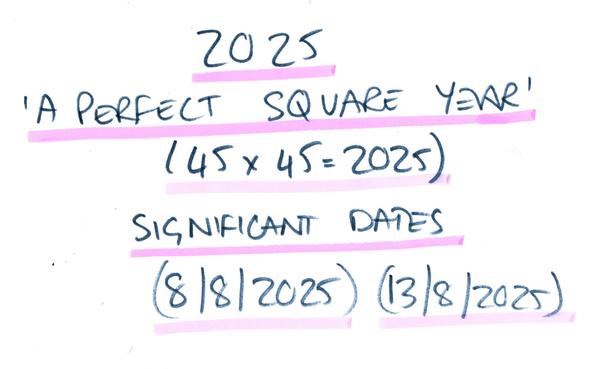 2025
'A PERFECT SQUARE YEAR'
(45 x 45 = 2025)
SIGNIFICANT DATES
(8/8/2025) (13/8/2025)